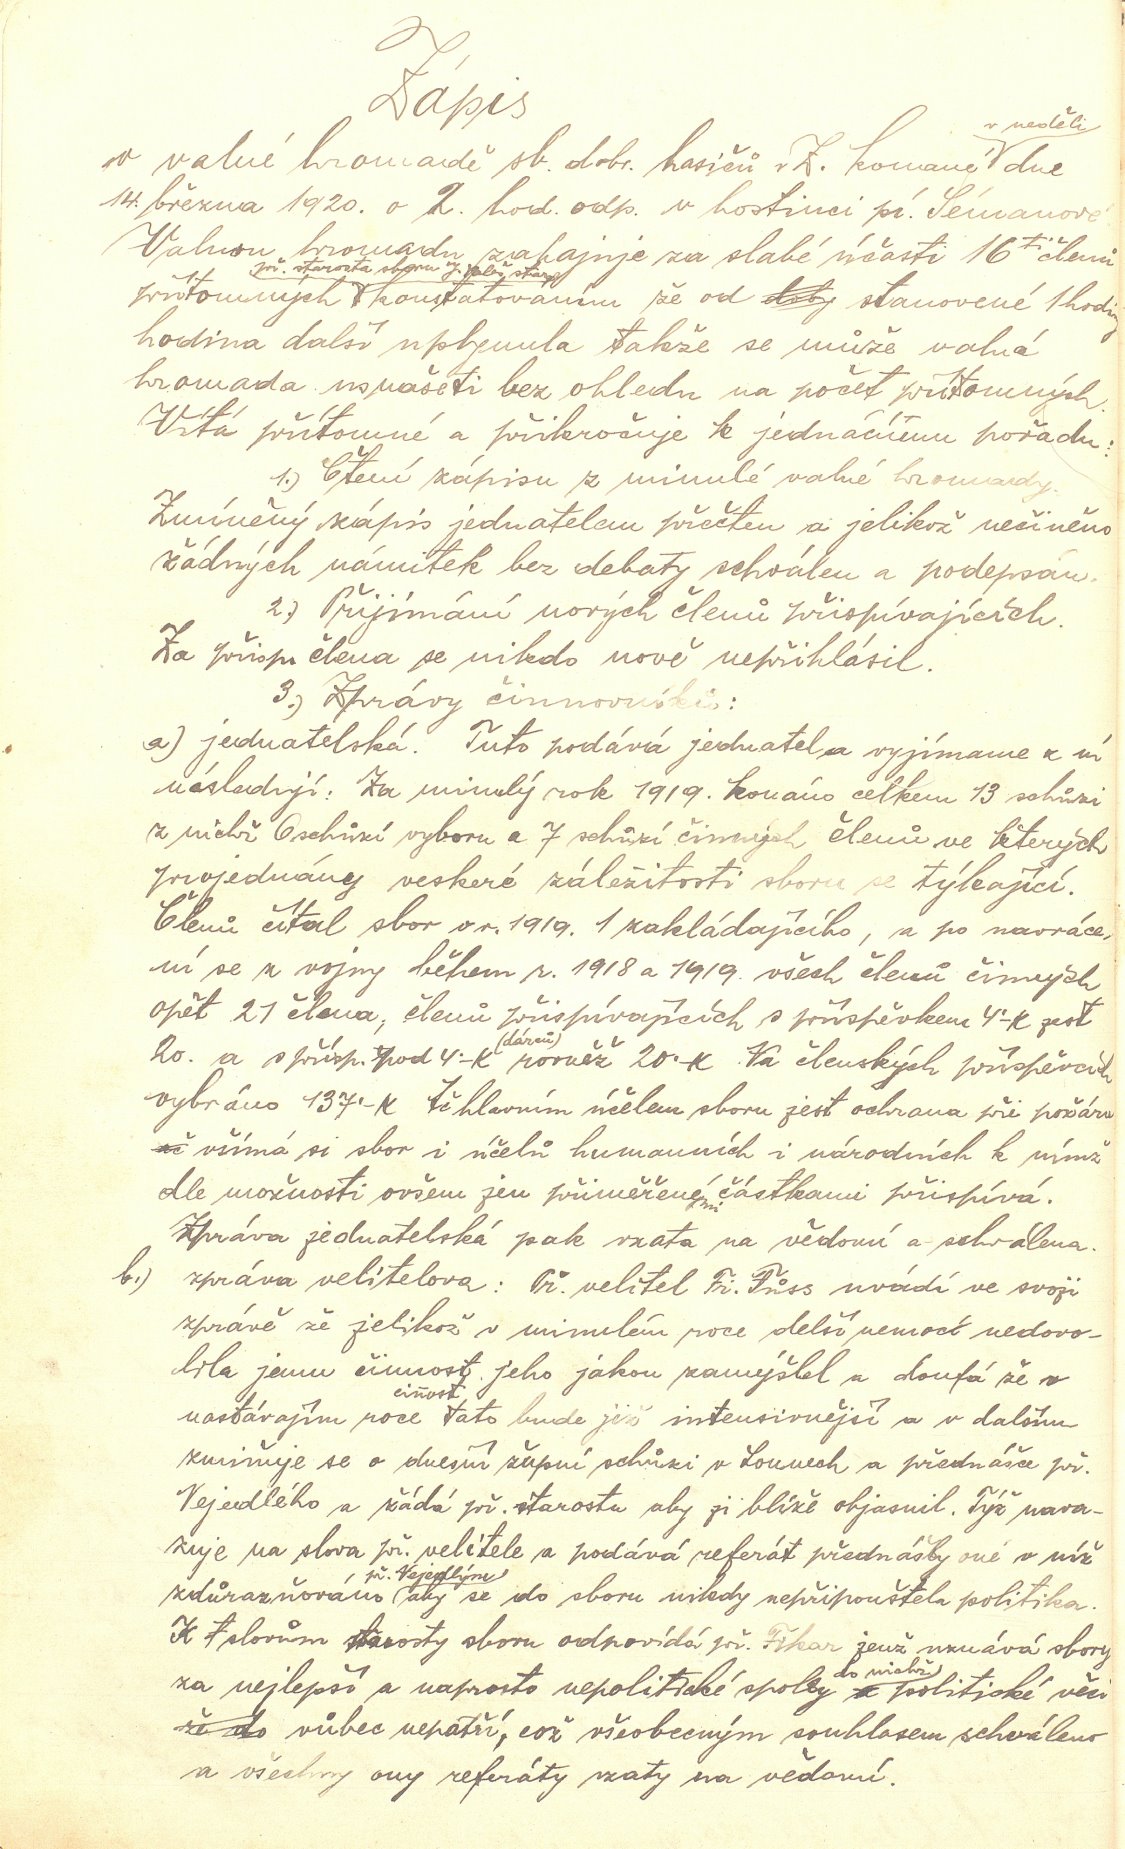 Zápis
v neděli
o valné hromadě sb. dobr. hasičů v Z. konané dne
14. března 1920. o 2. hod. odp. v hostinci pí. Sémanové
Valnou hromadu zahajuje za slabé účasti 16ti členů
př. starosta sboru
přítomných konstatováním že od doby stanovené 1 hodiny
hodina další uplynula takže se může valná
hromada usnášeti bez ohledu na počet přítomných.
Vítá přítomné a přikročuje k jednacímu pořadu:
1.) Čtení zápisu z minulé valné hromady.
Zmíněný zápis jednatelem přečten a jelikož nečiněno
žádných námitek bez debaty schválen a podepsán.
2.) Přijímání nových členů přispívajících.
Za přisp. člena se nikdo nově nepřihlásil.
3.) Zprávy činovníků:
a) jednatelská. Tuto podává jednatel a vyjímame z ní
následují: Za minulý rok 1919. konáno celkem 13 schůzí
z nichž 6 schůzí vyboru a 7 schůzí činných členů ve kterých
projednány veskeré záležitosti sboru se týkající.
Členů čítal sbor v r. 1919. 1 zakládajícího, a po navráce-
ní se z vojny během r. 1918 a 1919. všech členů činných
opět 21 člena, členů přispívajících s příspěvkem 4·-K jest
(dárců)
20. a s přísp. pod 4·-K rovněž 20·-K Na členských příspěvcích
vybráno 137·-K Ač hlavním účelem sboru jest ochrana při požáru
ač všímá si sbor i účelů humanních i národních k nímž
dle možnosti ovšem jen přiměřenými částkami přispívá.
Zpráva jednatelská pak vzata na vědomí a schválena.
b.) zpráva velitelova: Př. velitel Fr. Fůss uvádí ve svoji
zprávě že jelikož v minulém roce delší nemoc nedovo-
lila jemu činnost jeho jakou zamýšlel a doufá že v
činost
nastávajím roce tato bude již intensivnější a v dalším
zmiňuje se o dnesní župní schůzi v Lounech a přednášce př.
Nejedlého a žádá př. starostu aby ji blíže objasnil. Týž nava-
zuje na slova př. velitele a podává referát přednášky oné v níž
př. Nejedlým
zdůrazňováno aby se do sboru nikdy nepřipouštela politika.
K slovům starosty sboru odpovídá př. Fikar jenž uznává sbory
do nichž
za nejlepší a naprosto nepolitické spolky a politické věci
že do vůbec nepatří, což všeobecným souhlasem schváleno
a všechny ony referáty vzaty na vědomí.